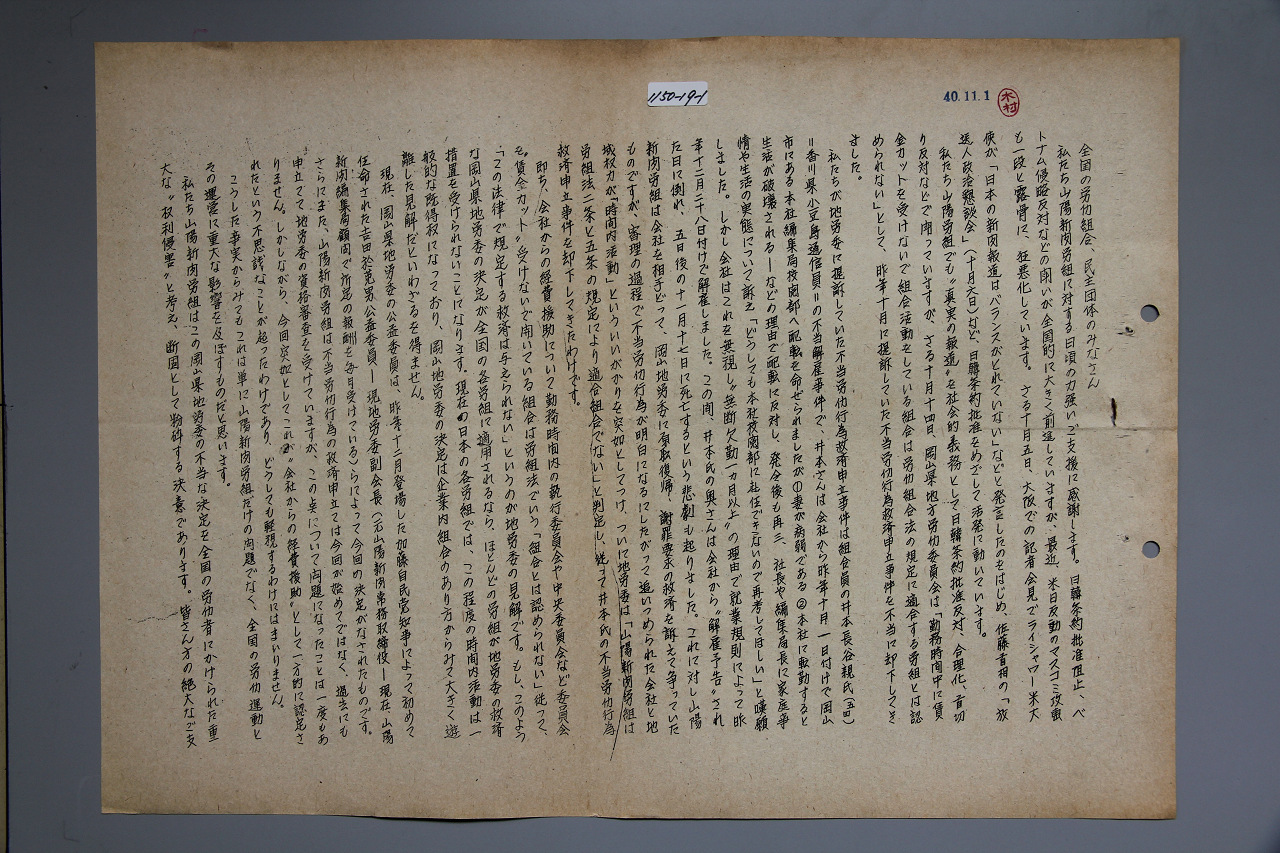 1150-19-1
40.11.1
木村
全国の労仂組合、民主団体のみなさん
私たち山陽新聞労組に対する日頃の力強いご支援に感謝します。日韓条約批准阻止、ベ
トナム侵略反対などの闘いが全国的に大きく前進していますが、最近、米日反動のマスコミ攻撃
も一段と露骨に、狂悪化しています。さる十月五日、大阪での記者会見でライシャワー米大
使が「日本の新聞報道はバランスがとれていない」などと発言したのをはじめ、佐藤首相の「放
送人政治懇談会」(十月六日)など、日韓条約批准をめざして活発に動いています。
私たち山陽労組でも“真実の報道”を社会的義務として日韓条約批准反対、合理化、首切
り反対などで闘っていますが、さる十月十四日、岡山県地方労仂委員会は「勤務時間中に賃
金カットを受けないで組合活動をしている組合は労仂組合法の規定に適合する労組とは認
められない」として、昨年十月に提訴していた不当労仂行為救済申立事件を不当に却下してき
ました。
私たちが地労委に提訴していた不当労仂行為救済申立事件は組合員の井本長谷親氏(五四)
=香川県小豆島通信員=の不当解雇事件で、井本さんは会社から昨年十月一日付けで岡山
市にある本社編集局校閲部へ配転を命ぜられましたが①妻が病弱である②本社に転勤すると
生活が破壊される―などの理由で配転に反対し、発令後も再三、社長や編集局長に家庭事
情や生活の実態について訴え「どうしても本社校閲部に赴任できないので再考してほしい」と嘆願
しました。しかし会社はこれを無視し“無断欠勤一カ月以上”の理由で就業規則によって昨
年十二月二十八日付けで解雇しました。この間、井本氏の奥さんは会社から“解雇予告”され
た日に倒れ、五日後の十一月十七日に死亡するという悲劇も起りました。これに対し山陽
新聞労組は会社を相手どって、岡山地労委に原取復帰、謝罪要求の救済を訴えて争っていた
ものですが、審理の過程で不当労仂行為が明白になるにしたがって追いつめられた会社と地
域权力が「時間内活動」といういいがかりを突如としてつけ、ついに地労委は「山陽新聞労組は
労組法二条と五条の規定により適合組合でない」と判定し、従って井本氏の不当労仂行為
救済申立事件を却下してきたわけです。
即ち、会社からの経費援助について勤務時間内の執行委員会や中央委員会など委員会
を“賃金カット”受けないで開いている組合は労組法でいう「組合とは認められない」従って、
「この法律で規定する救済は与えられない」というのが地労委の見解です。もし、このよう
な岡山県地労委の決定が全国の各労組に適用されるなら、ほとんどの労組が地労委の救済
措置を受けられないことになります。現在の日本の各労組では、この程度の時間内活動は一
般的な既得权になっており、岡山地労委の決定は企業内組合のあり方からみて大きく遊
離した見解だといわざるを得ません。
現在、岡山県地労委の公益委員は、昨年十二月登場した加藤自民党知事によって初めて
任命された吉田於克男公益委員―現地労委副会長(元山陽新聞常務取締役―現在、山陽
新聞編集局顧問で所定の報酬を毎月受けている)らによって今回の決定がなされたものです。
さらにまた、山陽新聞労組は不当労仂行為の救済申立ては今回が始めてではなく、過去にも
申立てて、地労委の資格審査を受けていますが、この点について問題になったことは一度もあ
りません。しかしながら、今回突如としてこれが“会社からの経費援助”として一方的に認定さ
れたという不思議なことが起ったわけであり、どうしても軽視するわけにはまいりません。
こうした事実からみてもこれは単に山陽新聞労組だけの問題でなく、全国の労仂運動と
その運営に重大な影響を及ぼすものだと思います。
私たち山陽新聞労組はこの岡山県地労委の不当な決定を全国の労仂者にかけられた重
大な“权利侵害”と考え、断固として粉砕する決意であります。皆さん方の絶大なご支